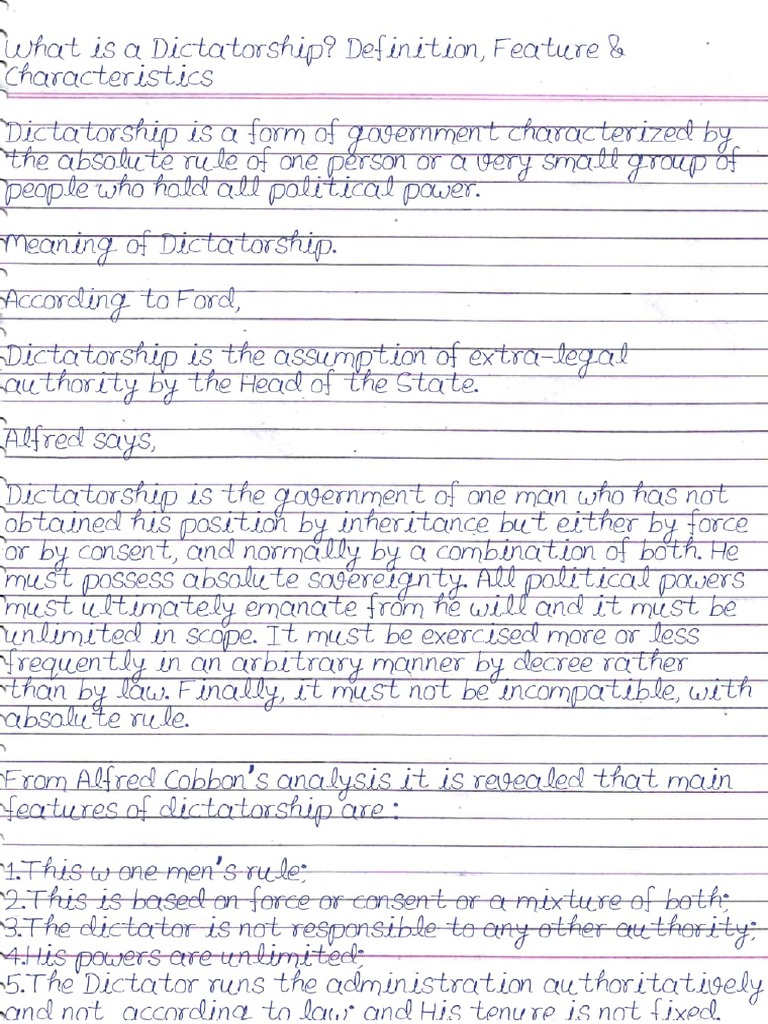 What is a Dictatorship? Definition, Feature &
Characteristics
Dictatorship is a form of government characterized by
the absolute rule of one person or a very small group of
people who hold all political power.
Meaning of Dictatorship.
According to Ford,
Dictatorship is the assumption of extra-legal
authority by the Head of the State.
Alfred says,
Dictatorship is the government of one man who has not
obtained his position by inheritance but either by force
or by consent, and normally by a combination of both. He
must possess absolute sovereignty. All political powers
must ultimately emanate from he will and it must be
unlimited in scope. It must be exercised more or less
frequently in an arbitrary manner by decree rather
than by law. Finally, it must not be incompatible, with
absolute rule.
From Alfred Cobbon's analysis it is revealed that main
features of dictatorship are:
1.This w one men's rule;
2.This is based on force or consent or a mixture of both;
3.The dictator is not responsible to any other authority;
4.His powers are unlimited;
5.The Dictator runs the administration authoritatively
and not according to law; and His tenure is not fixed.